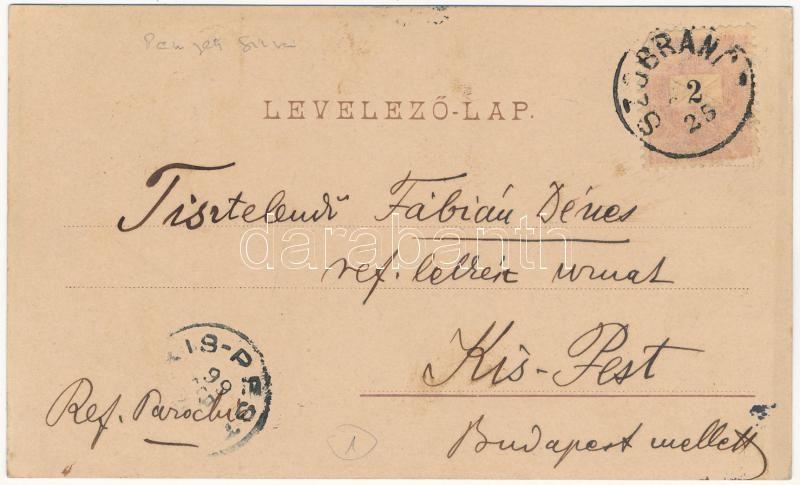 SZOBRÁNC
2
25
LEVELEZŐ-LAP.
Tisztelendő Fábián Dénes
darabanth
ref. lelkész urnak
Kis-Pest
KIS-PEST
99
Ref. Parochia
1
Budapest mellett